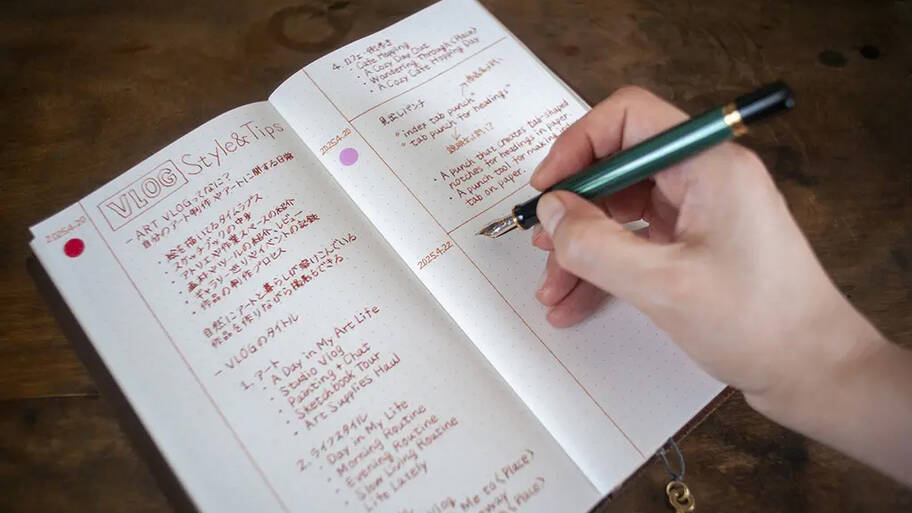 2025.4.20
VLOG Style&Tips
- ART VLOGってなに?
自分のアート制作やアートに関する日常
・絵を描いてるタイムラプス
・スケッチブックの中身
・アトリエや作業スペースの紹介
・画材やツールの紹介、レビュー
・ギャラリー巡りやイベントの記録
・作品の制作プロセス
自然にアートと暮らしが溶けこんでいる
作品を作りながら
- VLOGのタイトル
1. アート
・A Day in My Art Life
・Studio Vlog
・Painting + Chat
・Sketchbook Tour
・Art Supplies Haul
2. ライフスタイル
・Day in My Life
・Morning Routine
・Evening Routine
・Slow Living Routine
・Life Lately
Vlog
Me to (Place)
away
(Place)
4. カフェ・街歩き
・Cafe Hopping
・A Cozy Day Out
・Wandering Through (Place)
・A Cozy Cafe Hopping Day
2025.4.20
見出しパンチ
"index tab punch"
"tab punch for headings"
A punch that creates tab-shaped
notches for headings in paper.
・A punch tool for making
tab on paper.
2025.4.22